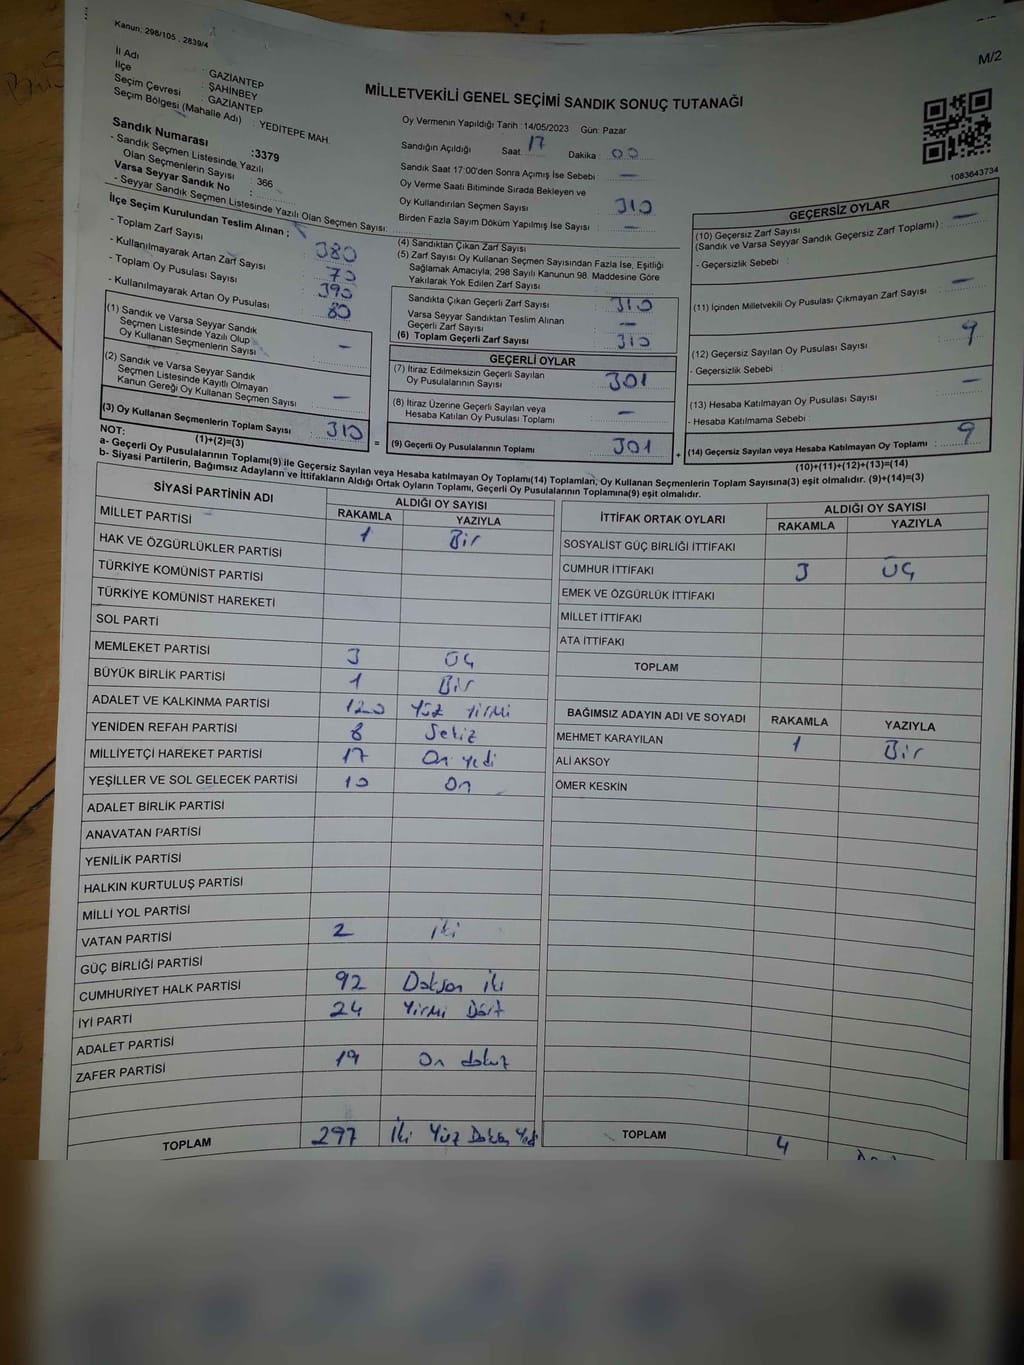 Kanun: 298/105 , 2839/4
M/2
İl Adı : GAZİANTEP
İlçe : ŞAHİNBEY
Seçim Çevresi : GAZİANTEP
Seçim Bölgesi (Mahalle Adı) : YEDİTEPE MAH.
MİLLETVEKİLİ GENEL SEÇİMİ SANDIK SONUÇ TUTANAĞI
Sandık Numarası :3379
- Sandık Seçmen Listesinde Yazılı
Olan Seçmenlerin Sayısı : 366
Varsa Seyyar Sandık No :
- Seyyar Sandık Seçmen Listesinde Yazılı Olan Seçmen Sayısı:
Oy Vermenin Yapıldığı Tarih :14/05/2023 Gün: Pazar
Sandığın Açıldığı Saat 17 Dakika : 00
Sandık Saat 17:00'den Sonra Açımış İse Sebebi : —
Oy Verme Saati Bitiminde Sırada Bekleyen ve
Oy Kullandırılan Seçmen Sayısı : 310
Birden Fazla Sayım Döküm Yapılmış İse Sayısı : —
1083643734
İlçe Seçim Kurulundan Teslim Alınan ;
- Toplam Zarf Sayısı : 380
- Kullanılmayarak Artan Zarf Sayısı : 70
- Toplam Oy Pusulası Sayısı : 390
- Kullanılmayarak Artan Oy Pusulası : 80
(1) Sandık ve Varsa Seyyar Sandık
Seçmen Listesinde Yazılı Olup
Oy Kullanan Seçmenlerin Sayısı : —
(2) Sandık ve Varsa Seyyar Sandık
Seçmen Listesinde Kayıtlı Olmayan
Kanun Gereği Oy Kullanan Seçmen Sayısı : —
(3) Oy Kullanan Seçmenlerin Toplam Sayısı : 310
(1)+(2)=(3)
(4) Sandıktan Çıkan Zarf Sayısı :
(5) Zarf Sayısı Oy Kullanan Seçmen Sayısından Fazla İse, Eşitliği
Sağlamak Amacıyla, 298 Sayılı Kanunun 98. Maddesine Göre
Yakılarak Yok Edilen Zarf Sayısı :
Sandıkta Çıkan Geçerli Zarf Sayısı : 310
Varsa Seyyar Sandıktan Teslim Alınan
Geçerli Zarf Sayısı : —
(6) Toplam Geçerli Zarf Sayısı : 310
GEÇERLİ OYLAR
(7) İtiraz Edilmeksizin Geçerli Sayılan
Oy Pusulalarının Sayısı : 301
(8) İtiraz Üzerine Geçerli Sayılan veya
Hesaba Katılan Oy Pusulaları Toplamı : —
= (9) Geçerli Oy Pusulalarının Toplamı : 301 +
GEÇERSİZ OYLAR
(10) Geçersiz Zarf Sayısı
(Sandık ve Varsa Seyyar Sandık Geçersiz Zarf Toplamı) : —
- Geçersizlik Sebebi :
(11) İçinden Milletvekili Oy Pusulası Çıkmayan Zarf Sayısı : —
(12) Geçersiz Sayılan Oy Pusulası Sayısı : 9
- Geçersizlik Sebebi :
(13) Hesaba Katılmayan Oy Pusulası Sayısı : —
- Hesaba Katılmama Sebebi :
(14) Geçersiz Sayılan veya Hesaba Katılmayan Oy Toplamı : 9
(10)+(11)+(12)+(13)=(14)
NOT:
a- Geçerli Oy Pusulalarının Toplamı(9) ile Geçersiz Sayılan veya Hesaba katılmayan Oy Toplamı(14) Toplamları, Oy Kullanan Seçmenlerin Toplam Sayısına(3) eşit olmalıdır. (9)+(14)=(3)
b- Siyasi Partilerin, Bağımsız Adayların ve İttifakların Aldığı Ortak Oyların Toplamı, Geçerli Oy Pusulalarının Toplamına(9) eşit olmalıdır.
SİYASİ PARTİNİN ADI ALDIĞI OY SAYISI
RAKAMLA YAZIYLA
MİLLET PARTİSİ 1 Bir
HAK VE ÖZGÜRLÜKLER PARTİSİ
TÜRKİYE KOMÜNİST PARTİSİ
TÜRKİYE KOMÜNİST HAREKETİ
SOL PARTİ
MEMLEKET PARTİSİ 3 ÜÇ
BÜYÜK BİRLİK PARTİSİ 1 Bir
ADALET VE KALKINMA PARTİSİ 120 Yüz Yirmi
YENİDEN REFAH PARTİSİ 8 Sekiz
MİLLİYETÇİ HAREKET PARTİSİ 17 On Yedi
YEŞİLLER VE SOL GELECEK PARTİSİ 10 On
ADALET BİRLİK PARTİSİ
ANAVATAN PARTİSİ
YENİLİK PARTİSİ
HALKIN KURTULUŞ PARTİSİ
MİLLİ YOL PARTİSİ
VATAN PARTİSİ 2 İki
GÜÇ BİRLİĞİ PARTİSİ
CUMHURİYET HALK PARTİSİ 92 Doksan iki
İYİ PARTİ 24 Yirmi Dört
ADALET PARTİSİ
ZAFER PARTİSİ 19 On dokuz
TOPLAM 297 İki Yüz Doksan Yedi
İTTİFAK ORTAK OYLARI ALDIĞI OY SAYISI
RAKAMLA YAZIYLA
SOSYALİST GÜÇ BİRLİĞİ İTTİFAKI
CUMHUR İTTİFAKI 3 ÜÇ
EMEK VE ÖZGÜRLÜK İTTİFAKI
MİLLET İTTİFAKI
ATA İTTİFAKI
TOPLAM
BAĞIMSIZ ADAYIN ADI VE SOYADI RAKAMLA YAZIYLA
MEHMET KARAYILAN 1 Bir
ALİ AKSOY
ÖMER KESKİN
TOPLAM 4